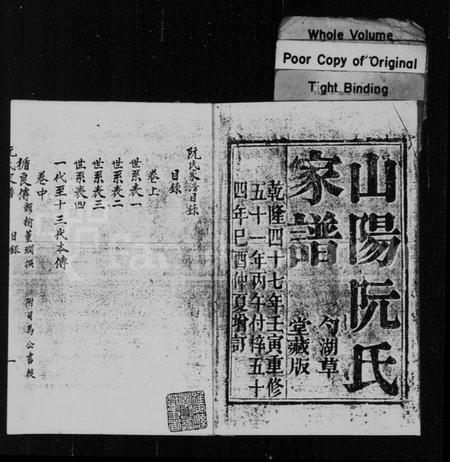 Whole Volume
Poor Copy of Original
Tight Binding
山陽阮氏
家譜
勺湖草
堂藏版
乾隆四十七年壬寅重修
五十一年丙午付梓五十
四年己酉仲夏增訂
阮氏家譜目錄
目錄
卷上
世系表一
世系表二
世系表三
世系表四
一代至十三代本傳
卷中
循良傳
撰
附司馬公書後
目錄
一